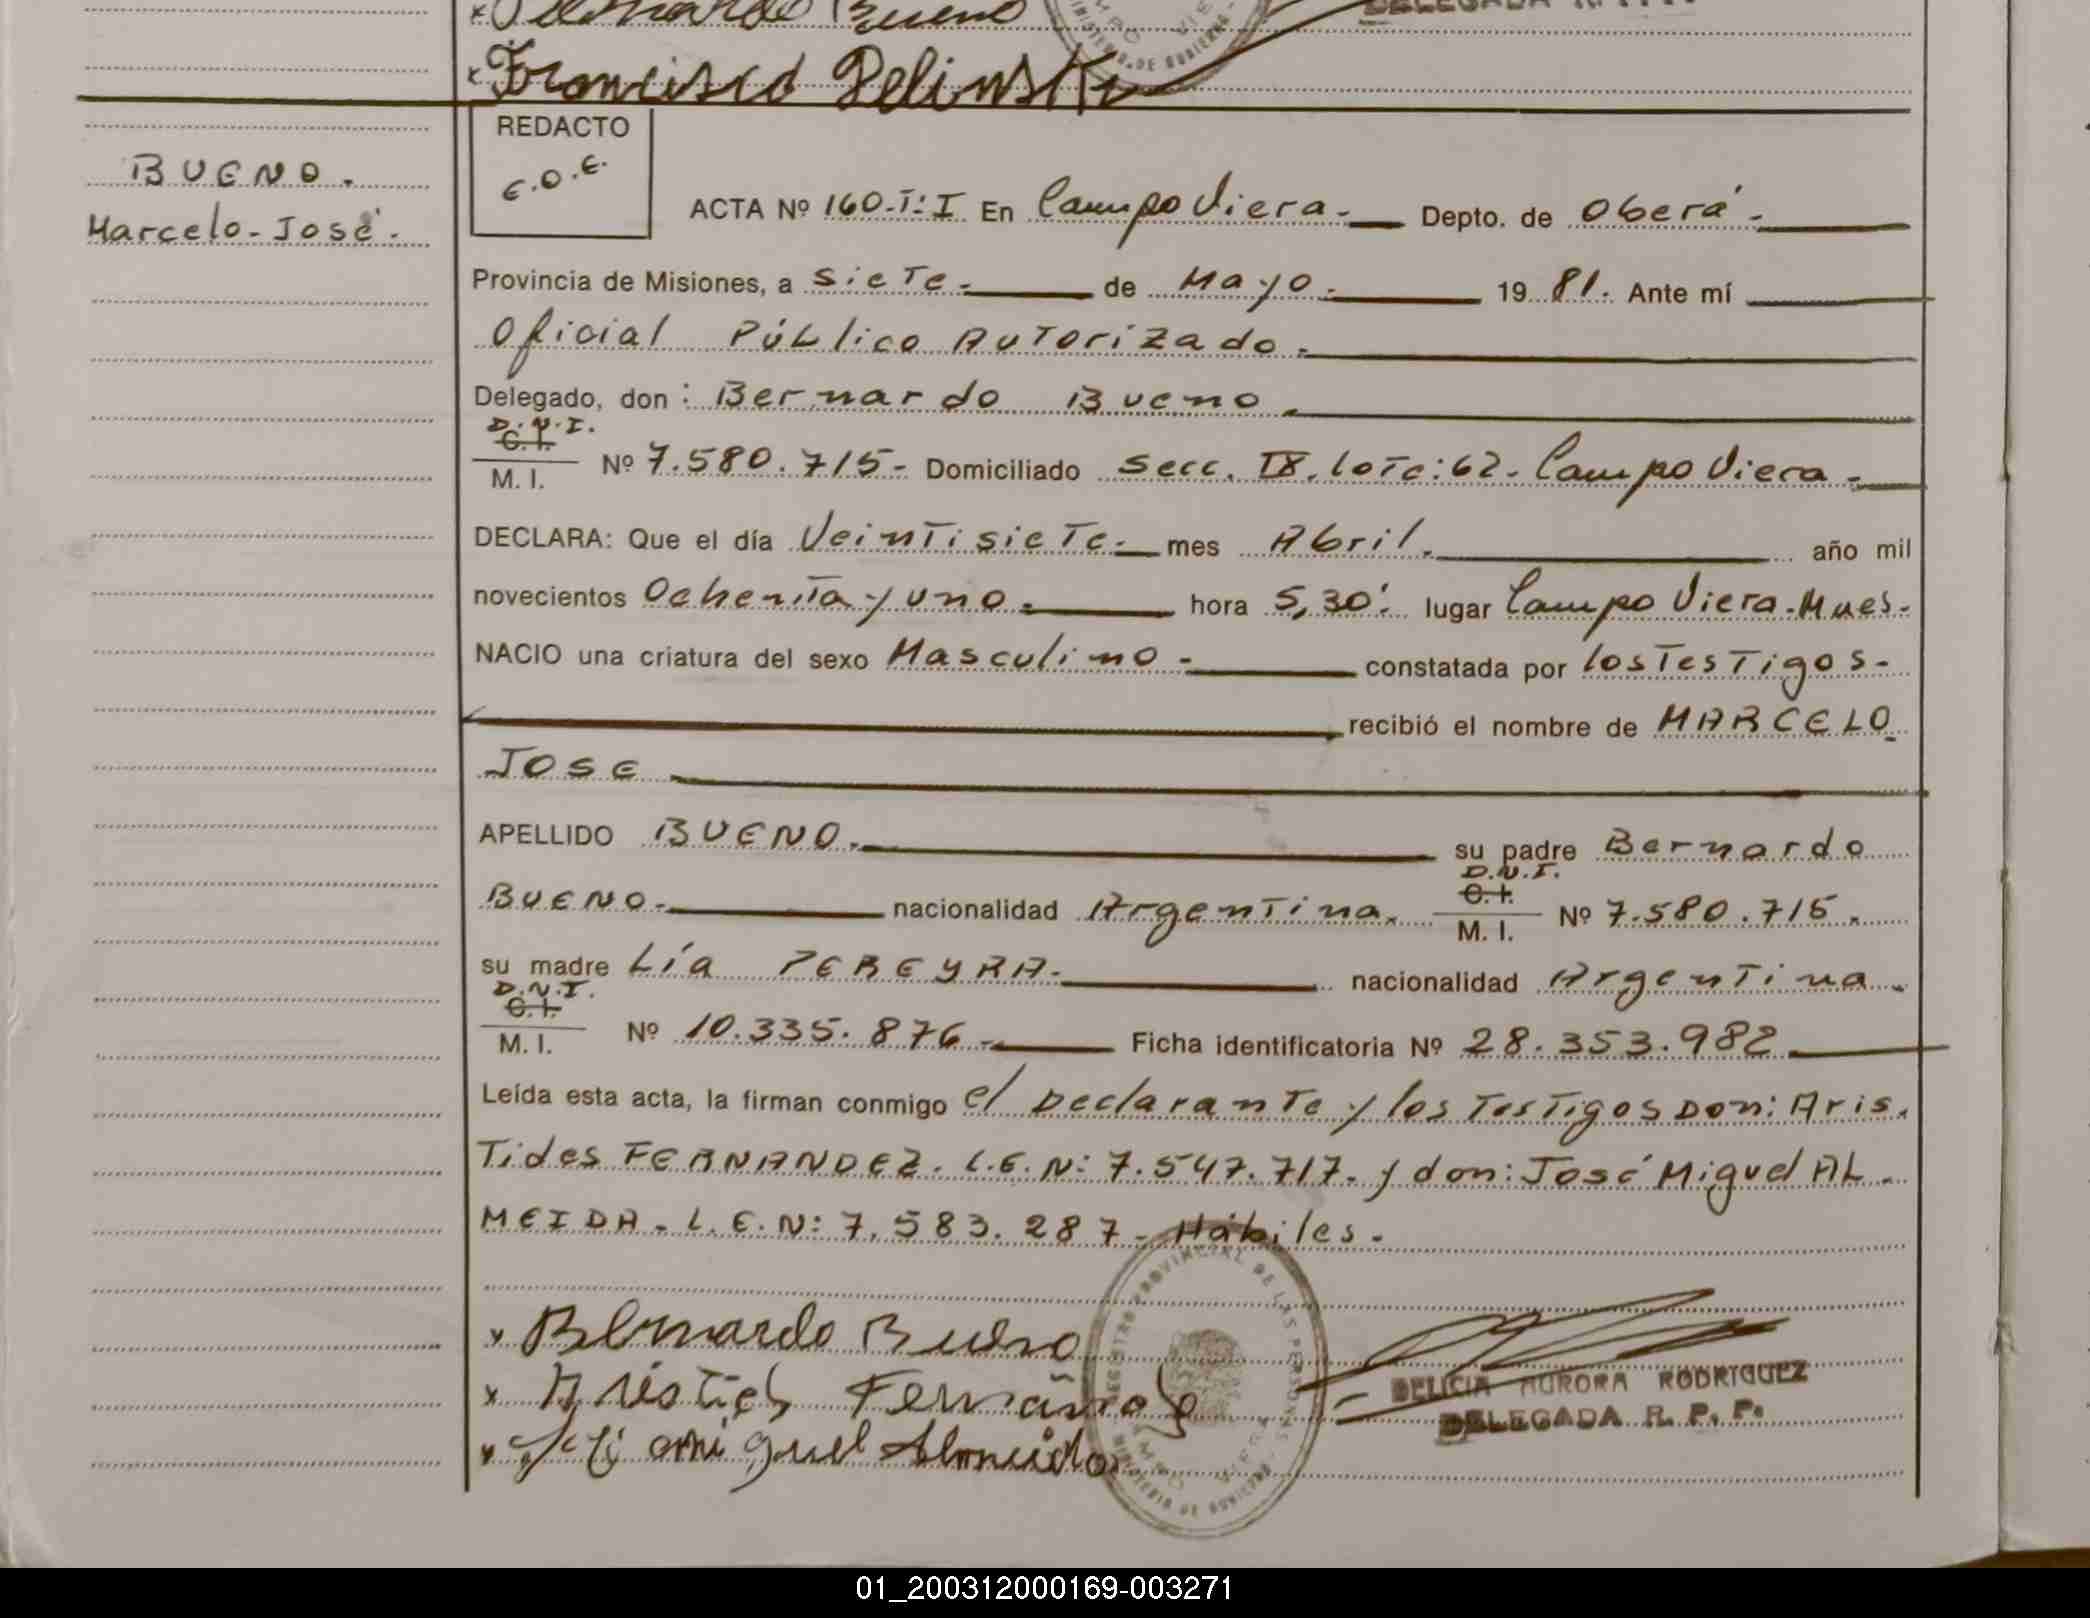 Bueno
DELEGADA R. P. P.
x Francisco Pelinski
REDACTO
E.O.E.
BUENO.
Marcelo-José.
ACTA Nº 160-T:I En Campo Viera.- Depto. de Oberá.-
Provincia de Misiones, a Siete.- de Mayo.- 19 81. Ante mí
Oficial Público Autorizado.-
Delegado, don: Bernardo Bueno.
D.N.I.
C. I.
M. I. Nº 7.580.715- Domiciliado Secc. IX. lote:62- Campo Viera-
DECLARA: Que el día Veintisiete.- mes Abril. año mil
novecientos Ochenta y uno.- hora 5,30'. lugar Campo Viera-Mnes-
NACIO una criatura del sexo Masculino- constatada por los Testigos-
recibió el nombre de MARCELO
JOSE
APELLIDO BUENO. su padre Bernardo
BUENO.- nacionalidad Argentina. D.N.I. C. I. M. I. Nº 7.580.715.
su madre Lía PEREYRA- nacionalidad Argentina.
D.N.I.
C. I.
M. I. Nº 10.335.876- Ficha identificatoria Nº 28.353.982
Leída esta acta, la firman conmigo el Declarante y los Testigos Don: Aris-
Tides FERNANDEZ. L.E.N: 7.547.717. y don: José Miguel AL-
MEIDA. L.E.N: 7.583.287- Hábiles.
x Bernardo Bueno
x Aristides Fernandez
x José miguel Almeida
REGISTRO PROVINCIAL DE LAS PERSONAS
CAMPO VIERA
MINISTERIO DE GOBIERNO
DELICIA AURORA RODRIGUEZ
DELEGADA R. P. P.
01_200312000169-003271